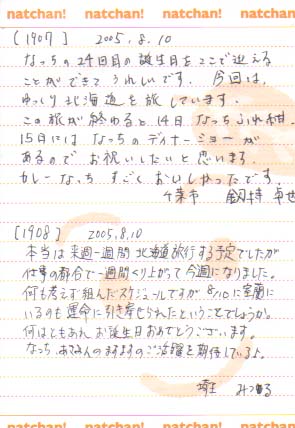 natchan! natchan! natchan! natchan!
[1907] 2005.8.10
なっちの24回目の誕生日をここで迎える
ことができてうれしいです。今回は、
ゆっくり北海道を旅しています。
この旅が終わると、14日なっちふれ
15日にはなっちのディナーショーが
あるのでお祝いしたいと思います。
カレーなっち すごくおいしかったです。
千葉市
[1908] 2005.8.10
本当は来週一週間北海道旅行する予定でしたが
仕事の都合で一週間くり上がって今週になりました。
何も考えず組んだスケジュールですが8/10に室蘭に
いるのも運命に引き寄せられたということでしょうか。
何はともあれお誕生日おめでとうございます。
なっち、あさみんのますますのご活躍を期待しているよ。
埼玉 みつる
natchan! natchan! natchan! natchan!